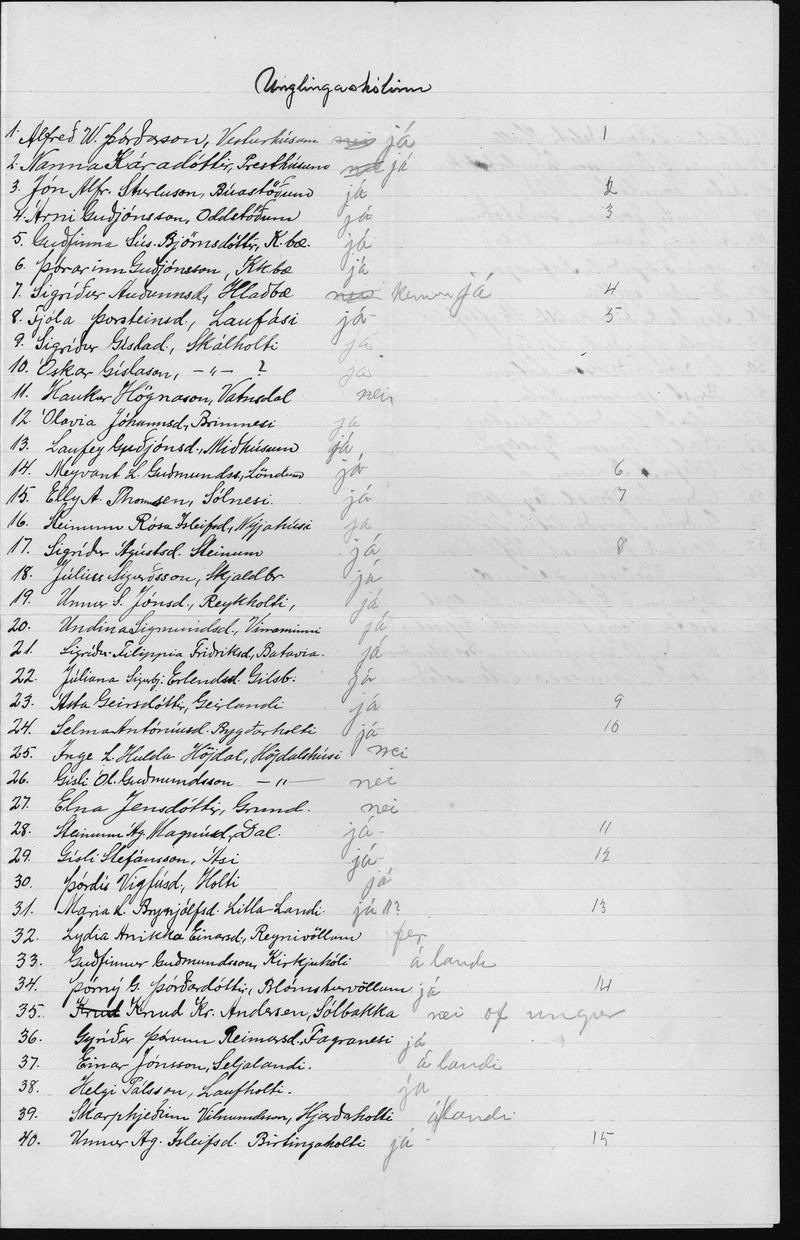 Unglingaskólinn
1. Alfreð W. Þórðarson, Vesturhúsum nei já 1
2. Nanna Káradóttir, Presthúsum nei já
3. Jón Alfr. Sturluson, Búastöðum já 2
4. Árni Guðjónsson, Oddstöðum já 3
5. Guðfinna Sús. Björnsdóttir, K.bæ. já
6. Þórarinn Guðjónsson, Kk.bæ já
7. Sigríður Auðunnsd, Hlaðbæ nei kemur já 4
8. Fjóla Þorsteinsd., Laufási já 5
9. Sigríður Gíslad., Skálholti já
10. Óskar Gíslason, -"- ? já
11. Haukur Högnason, Vatnsdal nei
12. Ólavia Jóhannsd, Brimnesi já
13. Laufey Guðjónsd., Miðhúsum já
14. Meyvant L. Guðmundss, Löndum já 6
15. Elly A. Thomsen, Sólnesi. já 7
16. Steinunn Rósa Ísleifsd, Nýjahúsi já
17. Sigríður Ágústsd. Steinum já 8
18. Júlíus Sigurðsson, Skjaldbr já
19. Unnur S. Jónsd., Reykholti, já
20. Undína Sigmundsd., Vinaminni já
21. Sigríður Filippía Friðriksd, Batavia. já
22. Júliana Sigurbj. Erlendsd. Gilsb. já
23. Ásta Geirsdóttir, Geirlandi já 9
24. Selma Antóníusd. Byggðarholti já 10
25. Inge L. Hulda Höjdal, Höjdalshúsi nei
26. Gísli Ól. Guðmundsson -"- nei
27. Elna Jensdóttir, Grund. nei
28. Steinunn Ág. Magnúsd, Dal. já 11
29. Gísli Stefánsson, Ási já 12
30. Þórdís Vigfúsd, Holti já
31. María L. Brynjólfsd. Litla Landi. já 11? 13
32. Lydia Anikka Einarsd, Reynivöllum fer
33. Guðfinnur Guðmundsson, Kirkjuhóli á landi
34. Þórný G. Þórðardóttir, Blómsturvöllum já 14
35. Knud Knud Kr. Andersen, Sólbakka nei of ungur
36. Gyríður Þórunn Reimarsd, Fagranesi já
37. Einar Jónsson, Seljalandi. á landi
38. Helgi Pálsson, Laufholti. já
39. Skarphjeðinn Vilmundsson, Hjarðaholti á landi
40. Unnur Ág. Ísleifsd. Birtingaholti já 15